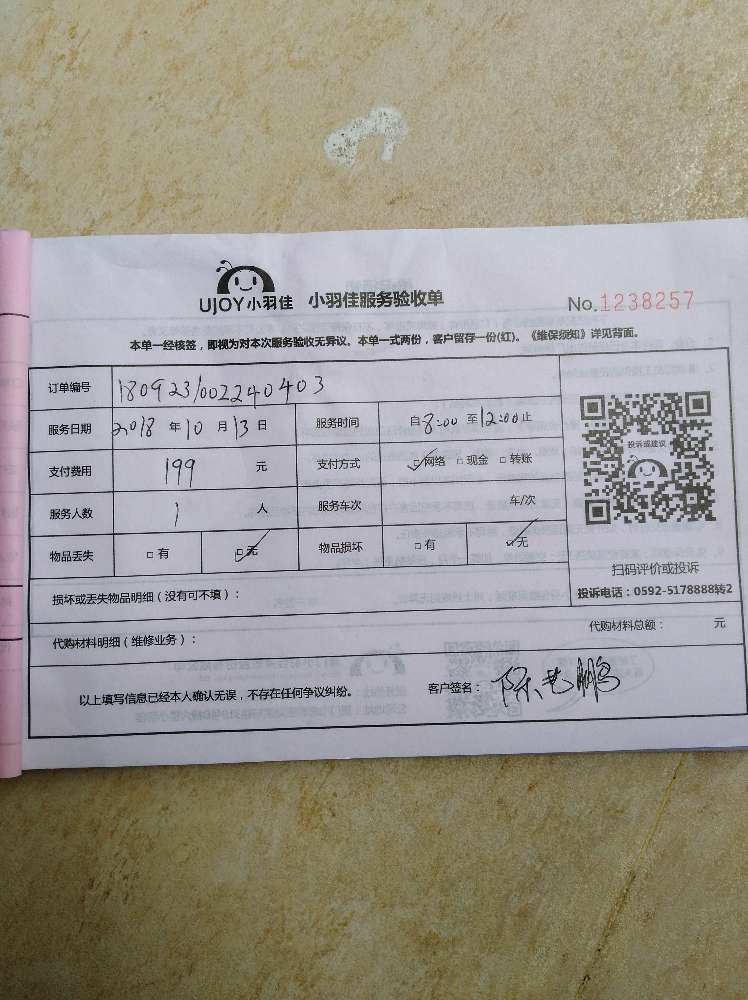 UJOY小羽佳 小羽佳服务验收单 No.1238257
本单一经核签，即视为对本次服务验收无异议。本单一式两份，客户留存一份(红)。《维保须知》详见背面。
订单编号 1809231002240403
服务日期 2018 年 10 月 13 日 服务时间 自 8:00 至 12:00 止
支付费用 199 元 支付方式 ☑网络 □现金 □转账
服务人数 1 人 服务车次 车/次
物品丢失 □有 ☑无 物品损坏 □有 ☑无
损坏或丢失物品明细（没有可不填）：
代购材料明细（维修业务）： 代购材料总额： 元
以上填写信息已经本人确认无误，不存在任何争议纠纷。 客户签名： 陈艺鹏
投诉或建议
扫码评价或投诉
投诉电话：0592-5178888转2